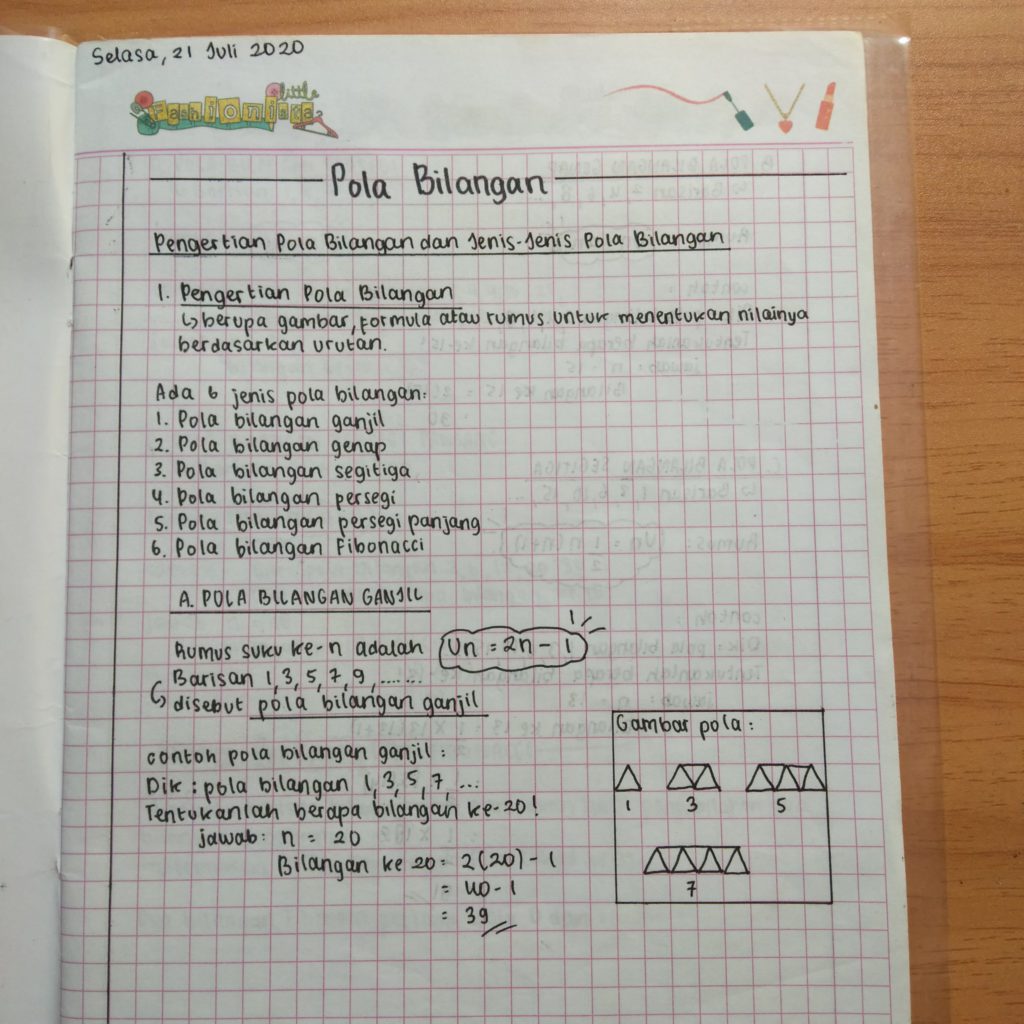 Selasa, 21 Juli 2020
little
Fashionista
Pola Bilangan
Pengertian Pola Bilangan dan Jenis-Jenis Pola Bilangan
1. Pengertian Pola Bilangan
↳ berupa gambar, formula atau rumus untuk menentukan nilainya
berdasarkan urutan.
Ada 6 jenis pola bilangan:
1. Pola bilangan ganjil
2. Pola bilangan genap
3. Pola bilangan segitiga
4. Pola bilangan persegi
5. Pola bilangan persegi panjang
6. Pola bilangan Fibonacci
A. POLA BILANGAN GANJIL
Rumus suku ke-n adalah Un = 2n - 1
Barisan 1, 3, 5, 7, 9, ......
↳ disebut pola bilangan ganjil
contoh pola bilangan ganjil :
Dik : pola bilangan 1, 3, 5, 7, ...
Tentukanlah berapa bilangan ke-20!
jawab: n = 20
Bilangan ke 20 = 2(20) - 1
= 40 - 1
= 39
Gambar pola :
1 3 5
7